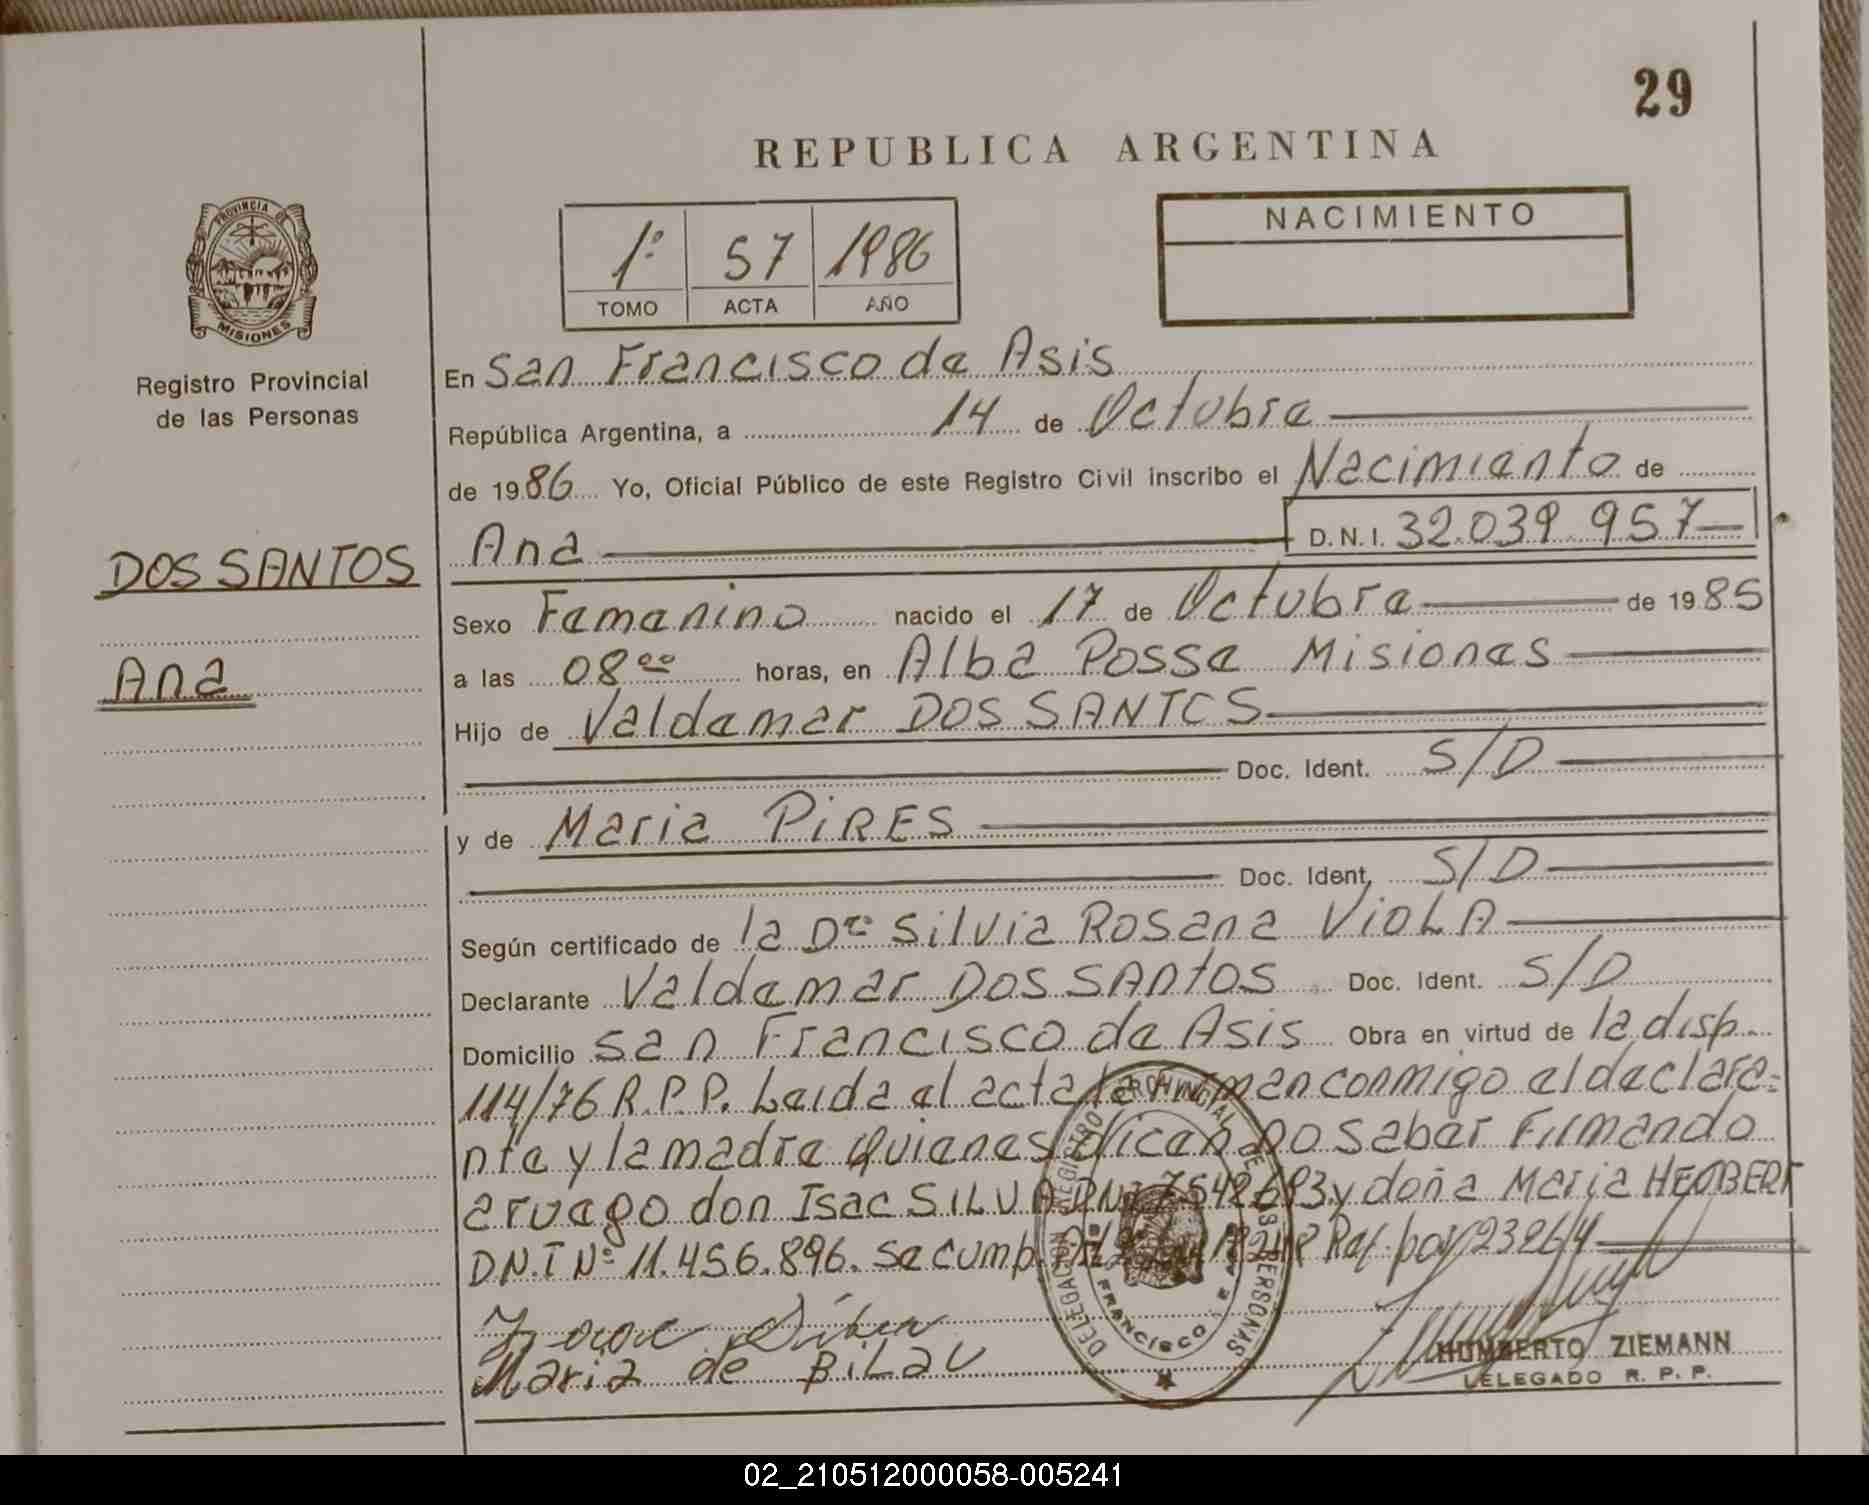 29
REPUBLICA ARGENTINA
PROVINCIA DE
MISIONES
Registro Provincial
de las Personas
1º 57 1986
TOMO ACTA AÑO
NACIMIENTO
En San Francisco de Asis
República Argentina, a 14 de Octubre
de 1986 Yo, Oficial Público de este Registro Civil inscribo el Nacimiento de
DOS SANTOS
Ana
Ana D.N.I. 32.039.957
Sexo Femenino nacido el 17 de Octubre de 1985
a las 08⁰⁰ horas, en Alba Posse Misiones
Hijo de Valdemar DOS SANTOS
Doc. Ident. S/D
y de Maria PiRES
Doc. Ident. S/D
Según certificado de la Dra Silvia Rosana VioLA
Declarante Valdemar DOS SANtOS Doc. Ident. S/D
Domicilio San Francisco de Asis Obra en virtud de la disp.
114/76 R.P.P. Leida el acta la firman conmigo el declara=
nte y la madre quienes dicen no saber Firmando
a ruego don Isac SILVA DNI 7.542.693 y doña Maria
DN.I Nº 11.456.896. Se cump. Ref. por 2326/4
Maria de BiLaU
DELEGACION REGISTRO PROVINCIAL DE LAS PERSONAS
FRANCISCO DE ASIS
HUMBERTO ZIEMANN
DELEGADO R. P. P.
02_210512000058-005241